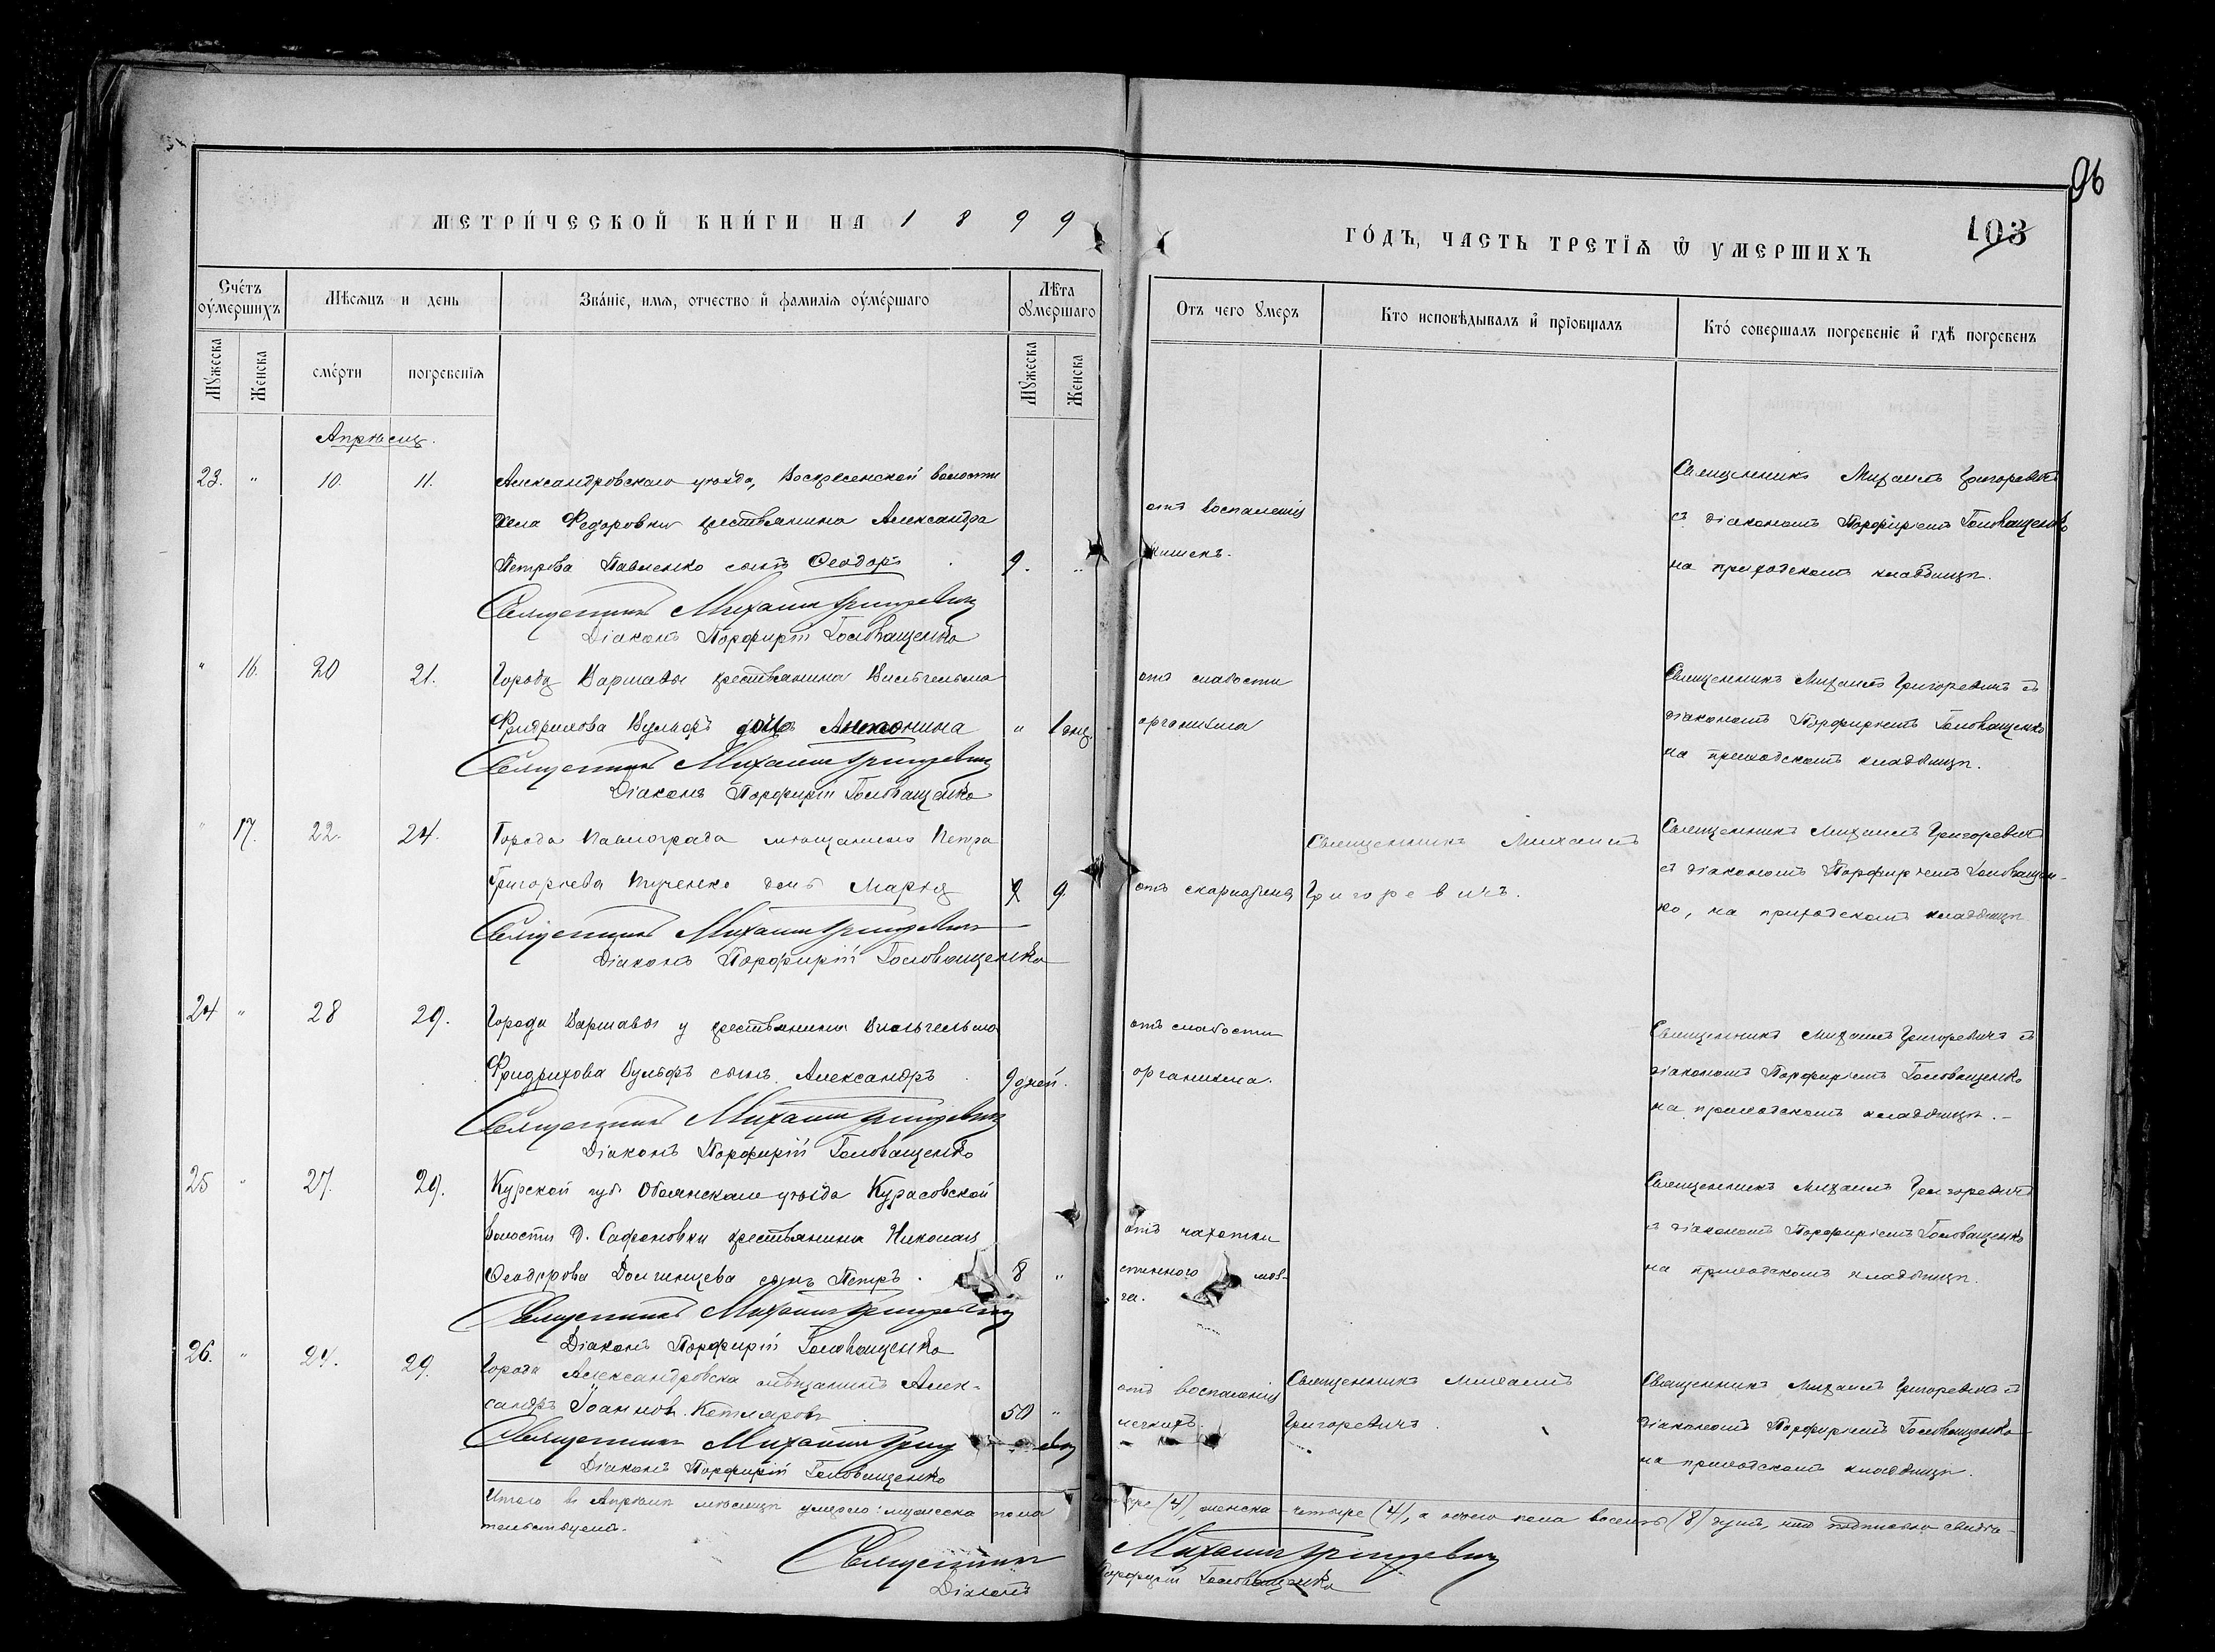 96
МЕТРИ́ЧЕСКОЙ КНИ́ГИ НА 1899
ГО́ДЪ, ЧАСТЬ ТРЕТЇѦ Ѿ УМЕРШИХЪ
103
Сче́тъ оу́мершихъ
Мѣсяцъ и день
Зва́нїе, имя, отчество и҆ фамилїя оу҆ме́ршаго
Лѣта ꙋмершаго
Отъ чего ꙋмеръ
Кто исповѣдывалъ и҆ прїобщалъ
Кто́ совершалъ погребенїе и҆ гдѣ погребенъ
Мꙋжеска
Женска
сме́рти
погребенїя
Мꙋжеска
Женска
Апрѣль.
23. " 10. 11. Александровскаго уѣзда, Воскресенской волости
села Федоровки крестьянина Александра
Петрова Павленко сынъ Ѳеодоръ 9. "
отъ воспаленія
кишекъ.
Священникъ Михаилъ Григоревичъ
съ діакономъ Порфиріемъ Головащенко
на приходскомъ кладбищѣ.
Священникъ Михаилъ Григоревичъ
Діаконъ Порфирій Головащенко
" 16. 20 21. Города Варшавы крестьянина Вильгельма
Фридрихова Вульфъ дочь Антонина " 1 дня.
отъ слабости
организма
Священникъ Михаилъ Григоревичъ съ
діакономъ Порфиріемъ Головащенко
на приходскомъ кладбищѣ.
Священникъ Михаилъ Григоревичъ
Діаконъ Порфирій Головащенко
" 17. 22. 24. Города Павлограда мѣщанина Петра
Григорьева дочь Марія 9
отъ скарлатины
Священникъ Михаилъ
Григоревичъ.
Священникъ Михаилъ Григоревичъ
съ діакономъ Порфиріемъ Головащен-
ко, на приходскомъ кладбищѣ
Священникъ Михаилъ Григоревичъ
Діаконъ Порфирій Головащенко
24 " 28 29. Города Варшавы у крестьянина Вильгельма
Фридрихова Вульфъ сынъ Александръ 9 дней.
отъ слабости
организма.
Священникъ Михаилъ Григоревичъ съ
діакономъ Порфиріемъ Головащенко
на приходскомъ кладбищѣ.
Священникъ Михаилъ Григоревичъ
Діаконъ Порфирій Головащенко
25 " 27. 29. Курской губ. Обоянскаго уѣзда Курасовской
волости д. Сафоновки крестьянина Николая
Ѳеодорова Долженцева сынъ Петръ. 8 "
отъ чахотки
спинного моз-
га.
Священникъ Михаилъ Григоревичъ
съ діакономъ Порфиріемъ Головащенко
на приходскомъ кладбищѣ.
Священникъ Михаилъ Григоревичъ
Діаконъ Порфирій Головащенко
26. " 27. 29. Города Александровска мѣщанинъ Алек-
сандръ Іоанновъ 50 "
отъ воспаленія
легкихъ.
Священникъ Михаилъ
Григоревичъ.
Священникъ Михаилъ Григоревичъ съ
діакономъ Порфиріемъ Головащенко
на приходскомъ кладбищѣ.
Священникъ Михаилъ Григоревичъ
Діаконъ Порфирій Головащенко
Итого въ Апрѣлѣ мѣсяцѣ умерло: мужеска пола четыре (4), женска четыре (4), а обоего пола восемь (8) душъ, что подписью свидѣ-
тельствуемъ.
Священникъ Михаилъ Григоревичъ
Діаконъ Порфирій Головащенко